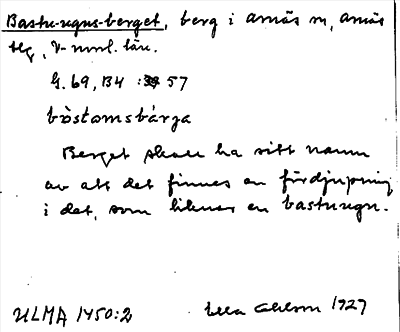 Bastu-ugns-berget, berg i Arnäs sn, Arnäs
tlg, V-norrl. län.
G. 69, B4 : 57
bàstomsbárga
Berget skall ha sitt namn
av att det finnes en fördjupning
i det, som liknar en bastuugn.
ULMA 1450:2 Ella Ohlson 1927